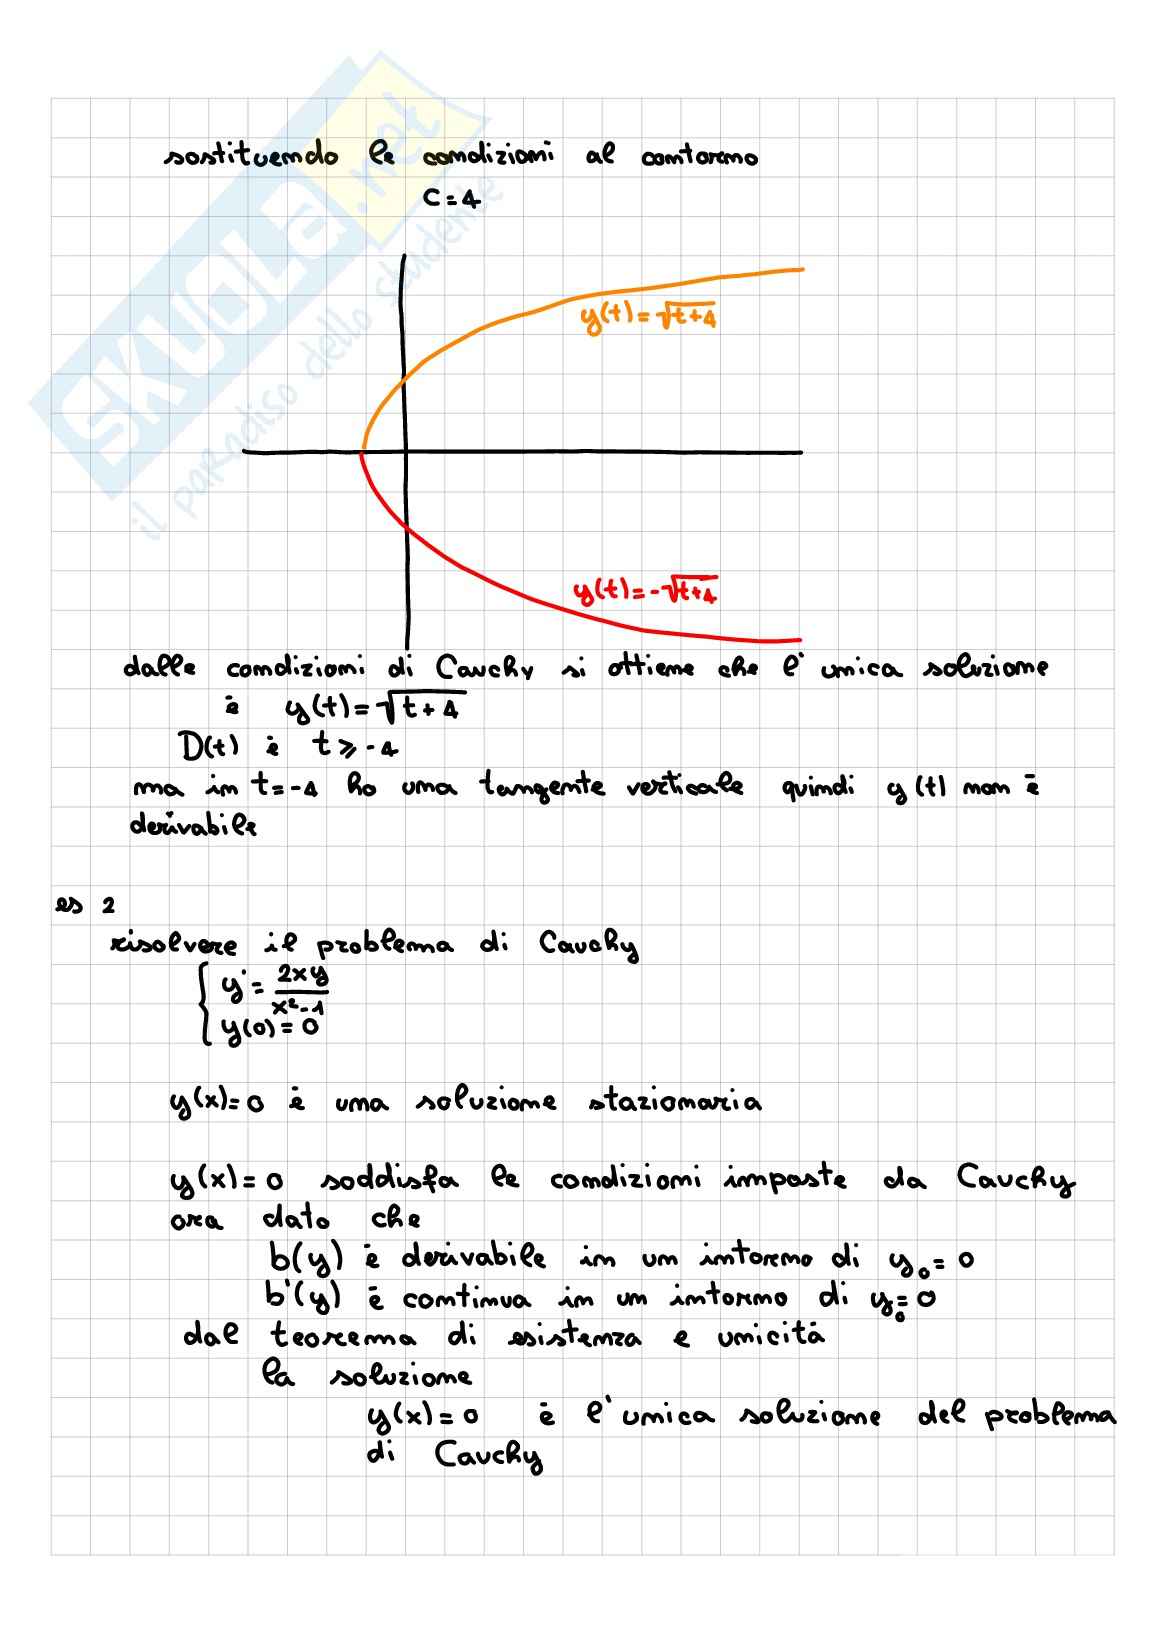 SKUOLA.net
il paradiso dello studente
sostituendo le condizioni al contorno
C = 4
y(t) = √t+4
y(t) = -√t+4
dalle condizioni di Cauchy si ottiene che l'unica soluzione
è y(t) = √t+4
D(t) è t ≥ -4
ma in t = -4 ho una tangente verticale quindi y(t) non è
derivabile
es 2
risolvere il problema di Cauchy
{ y' = 2xy / x²-1
y(0) = 0
y(x) = 0 è una soluzione stazionaria
y(x) = 0 soddisfa le condizioni imposte da Cauchy
ora dato che
b(y) è derivabile in un intorno di y₀ = 0
b'(y) è continua in un intorno di y₀ = 0
dal teorema di esistenza e unicità
la soluzione
y(x) = 0 è l'unica soluzione del problema
di Cauchy